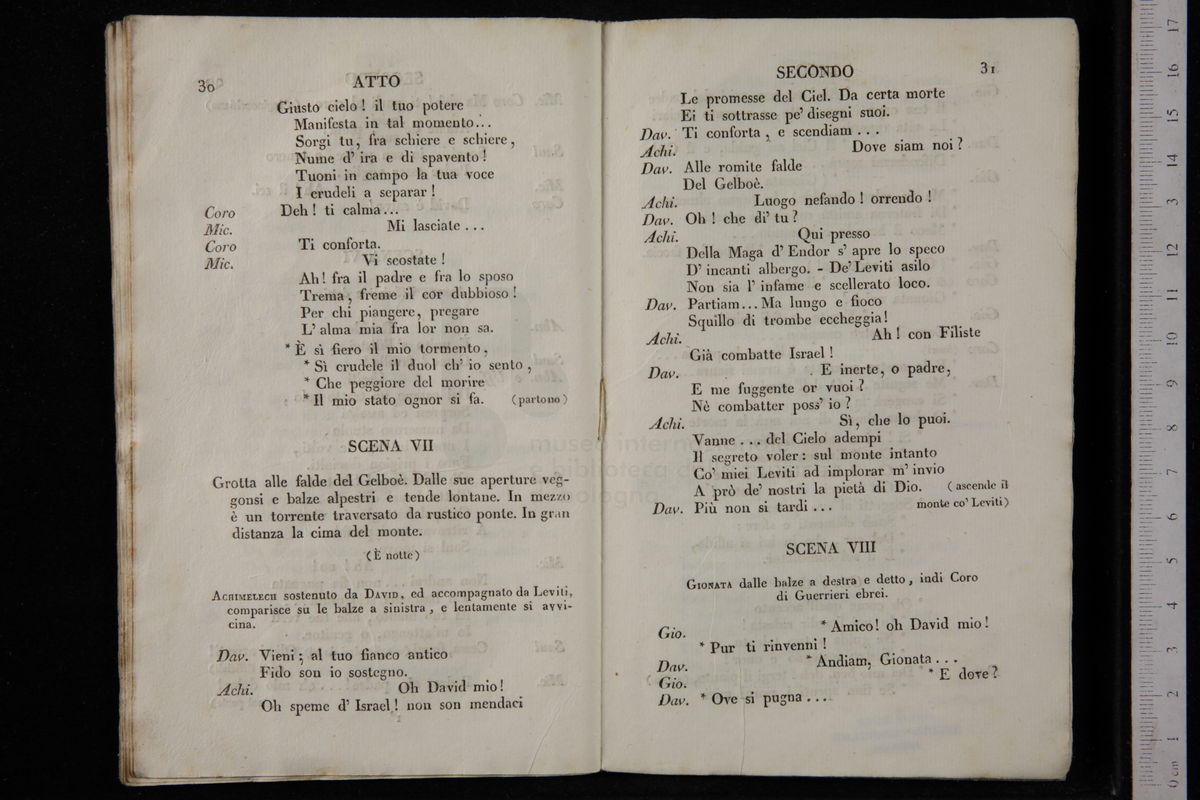 30
ATTO
Giusto cielo! il tuo potere
Manifesta in tal momento...
Sorgi tu, fra schiere e schiere,
Nume d' ira e di spavento!
Tuoni in campo la tua voce
I crudeli a separar!
Coro Deh! ti calma...
Mic. Mi lasciate ...
Coro Ti conforta.
Mic. Vi scostate!
Ah! fra il padre e fra lo sposo
Trema, freme il cor dubbioso!
Per chi piangere, pregare
L' alma mia fra lor non sa.
* È sì fiero il mio tormento,
* Sì crudele il duol ch' io sento,
* Che peggiore del morire
* Il mio stato ognor si fa. (partono)
SCENA VII
Grotta alle falde del Gelboè. Dalle sue aperture veg-
gonsi e balze alpestri e tende lontane. In mezzo
è un torrente traversato da rustico ponte. In gran
distanza la cima del monte.
(È notte)
ACHIMELECH sostenuto da DAVID, ed accompagnato da Leviti,
comparisce su le balze a sinistra, e lentamente si avvi-
cina.
Dav. Vieni; al tuo fianco antico
Fido son io sostegno.
Achi. Oh David mio!
Oh speme d' Israel! non son mendaci
SECONDO
31
Le promesse del Ciel. Da certa morte
Ei ti sottrasse pe' disegni suoi.
Dav. Ti conforta, e scendiam ...
Achi. Dove siam noi?
Dav. Alle romite falde
Del Gelboè.
Achi. Luogo nefando! orrendo!
Dav. Oh! che di' tu?
Achi. Qui presso
Della Maga d' Endor s' apre lo speco
D' incanti albergo. - De' Leviti asilo
Non sia l' infame e scellerato loco.
Dav. Partiam... Ma lungo e fioco
Squillo di trombe eccheggia!
Achi. Ah! con Filiste
Già combatte Israel!
Dav. . E inerte, o padre,
E me fuggente or vuoi?
Nè combatter poss' io?
Achi. Sì, che lo puoi.
Vanne ... del Cielo adempi
Il segreto voler: sul monte intanto
Co' miei Leviti ad implorar m' invio
A prò de' nostri la pietà di Dio. (ascende il
Dav. Più non si tardi ... monte co' Leviti)
SCENA VIII
GIONATA dalle balze a destra e detto, indi Coro
di Guerrieri ebrei.
Gio. * Amico! oh David mio!
* Pur ti rinvenni!
Dav. * Andiam, Gionata ...
Gio. * E dove?
Dav. * Ove si pugna ...
museo
e biblioteca
bologna
0 cm 1 2 3 4 5 6 7 8 9 10 11 12 13 14 15 16 17